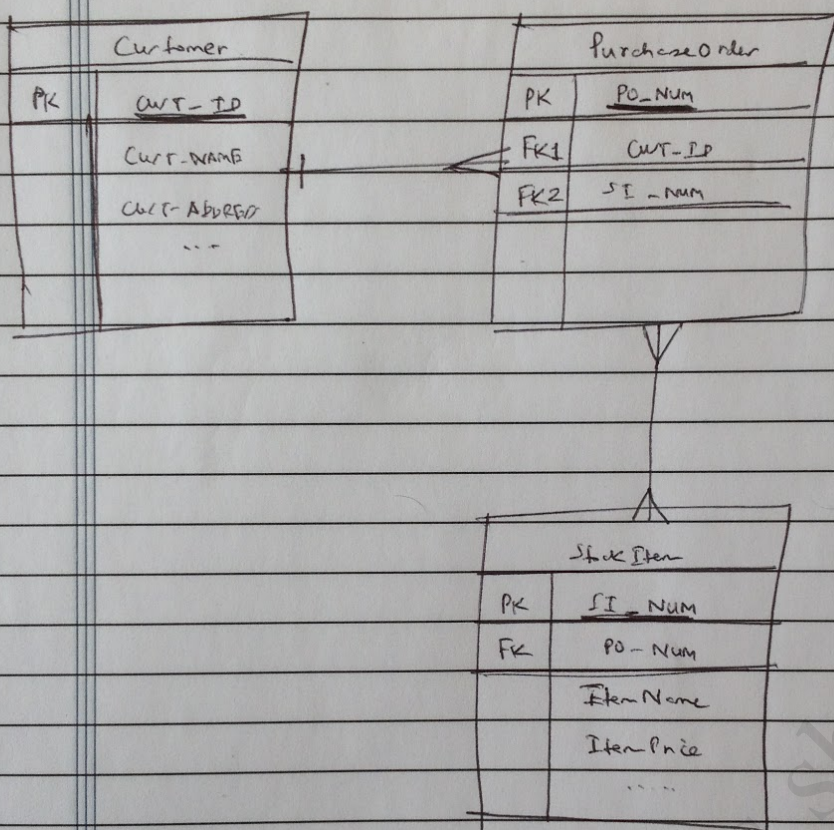 Customer
PK CUST_ID
CUST-NAME
CUST-ADDRESS
....
PurchaseOrder
PK PO_NUM
FK1 CUST_ID
FK2 SI_NUM
StockItem
PK SI_NUM
FK PO-NUM
ItemName
ItemPrice
.....